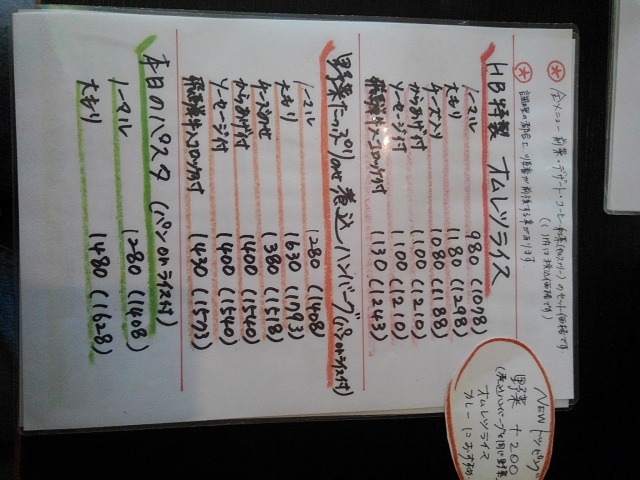 全メニュー 前菜・デザート・コーヒー
のセット価格です
(( )内は税込価格です)
調理の都合上、順番が前後する事があります
HB特製 オムレツライス
ノーマル 980 (1078)
大もり 1180 (1298)
チーズ入り 1080 (1188)
からあげ付 1100 (1210)
ソーセージ付 1100 (1210)
飛騨牛コロッケ付 1130 (1243)
野菜たっぷりのせ煮込ハンバーグ (パンorライス付)
ノーマル 1280 (1408)
大もり 1630 (1793)
チーズのせ 1380 (1518)
からあげ付 1400 (1540)
ソーセージ付 1400 (1540)
飛騨牛コロッケ付 1430 (1573)
本日のパスタ (パンorライス付)
ノーマル 1280 (1408)
大もり 1480 (1628)
NEWトッピング
野菜 +200
(煮込ハンバーグと同じ野菜)
オムレツライス
カレーにおすすめ